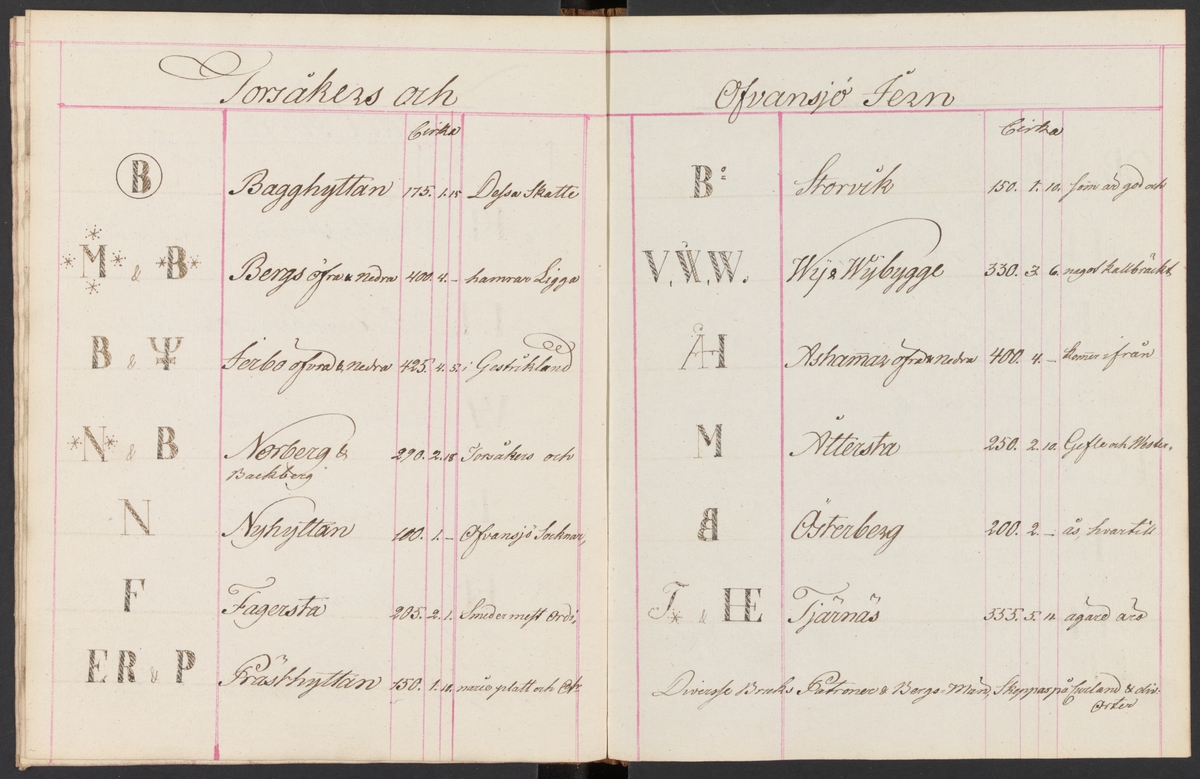 Torsåkers och
Cirka
B Bagghyttan 175. 1. 15 Dessa Skatte
M & B Bergs öfra & nedra 400. 4. – hamrar Ligga
B & Jerbo öfvra & nedra 425. 4. 5. i Gestrikland
N & B Norberg & 290. 2. 18 Torsåkers och
Backberg
N Nyhyttan 100. 1. – Ofvansjö Socknar,
F Fagersta 205. 2. 1. Smider mest Ordi,
ER & P Prästhyttan 150. 1. 10. narie platt och
Ofvansjö Jern
Cirka
B Storvik 150. 1. 10. som är god och
V. W. W. Wij & Wijbygge 330. 3. 6. något kallbräckt
ÅH Åshamar öfra & nedra 400. 4. – kommer ifrån
M Åttersta 250. 2. 10. Gefle och Wester,
Österberg 200. 2. – ås, hvartill
T & HE Tjärnäs 555. 5. 11. ägare äro
Diverse Bruks Patroner & Bergs-Män, Skeppas på & div.
Orter